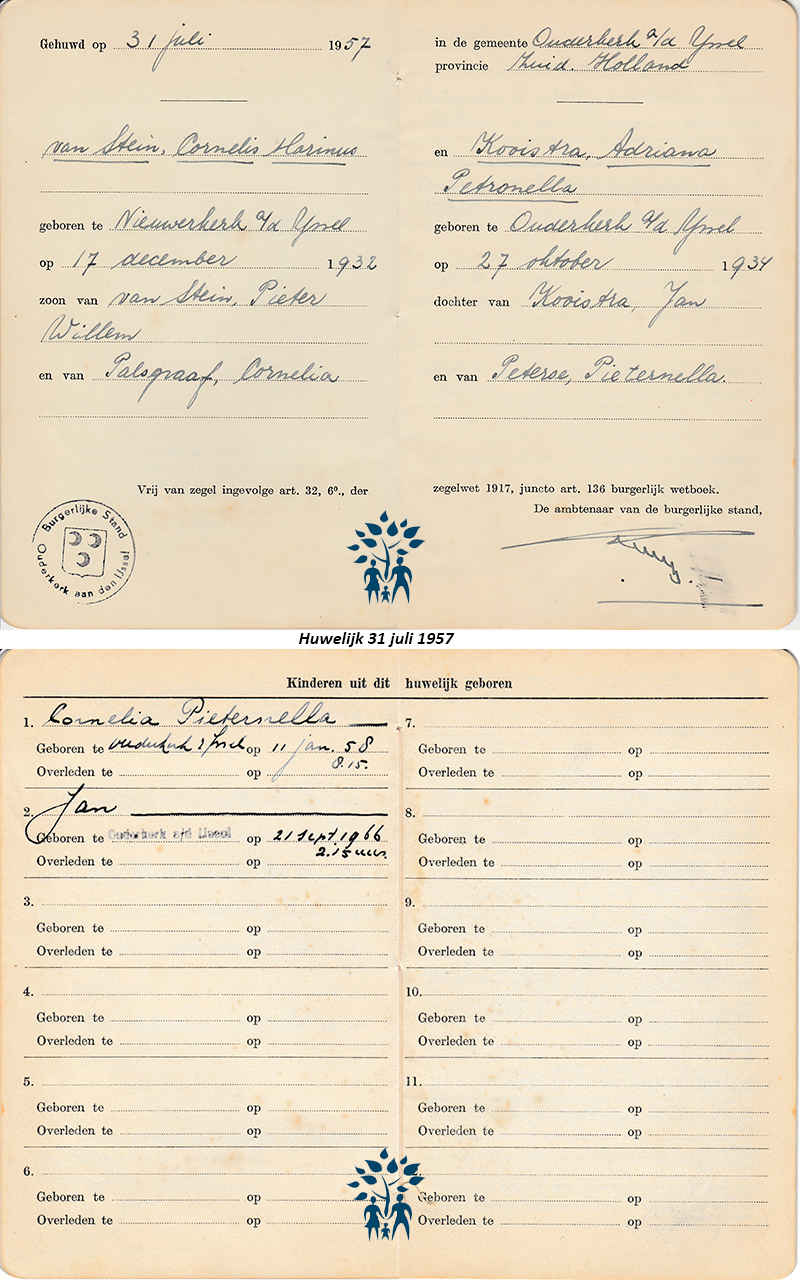 Gehuwd op 31 juli 1957
van Stein, Cornelis Marinus
geboren te Nieuwerkerk a/d Yssel
op 17 december 1932
zoon van van Stein, Pieter
Willem
en van Palsgraaf, Cornelia
Vrij van zegel ingevolge art. 32, 6º., der
Burgerlijke Stand
Ouderkerk aan den IJssel
in de gemeente Ouderkerk a/d Yssel
provincie Zuid. Holland
en Kooistra, Adriana
Petronella
geboren te Ouderkerk a/d Yssel
op 27 oktober 1934
dochter van Kooistra, Jan
en van Peterse, Pieternella.
zegelwet 1917, juncto art. 136 burgerlijk wetboek.
De ambtenaar van de burgerlijke stand,
Huwelijk 31 juli 1957
Kinderen uit dit huwelijk geboren
1. Cornelia Pieternella
Geboren te Ouderkerk a/d IJssel op 11 jan. 58
8.15.
Overleden te op
2. Jan
Geboren te Ouderkerk a/d IJssel op 21 sept. 1966
2.15 uur.
Overleden te op
3.
Geboren te op
Overleden te op
4.
Geboren te op
Overleden te op
5.
Geboren te op
Overleden te op
6.
Geboren te op
Overleden te op
7.
Geboren te op
Overleden te op
8.
Geboren te op
Overleden te op
9.
Geboren te op
Overleden te op
10.
Geboren te op
Overleden te op
11.
Geboren te op
Overleden te op
Geboren te op
Overleden te op